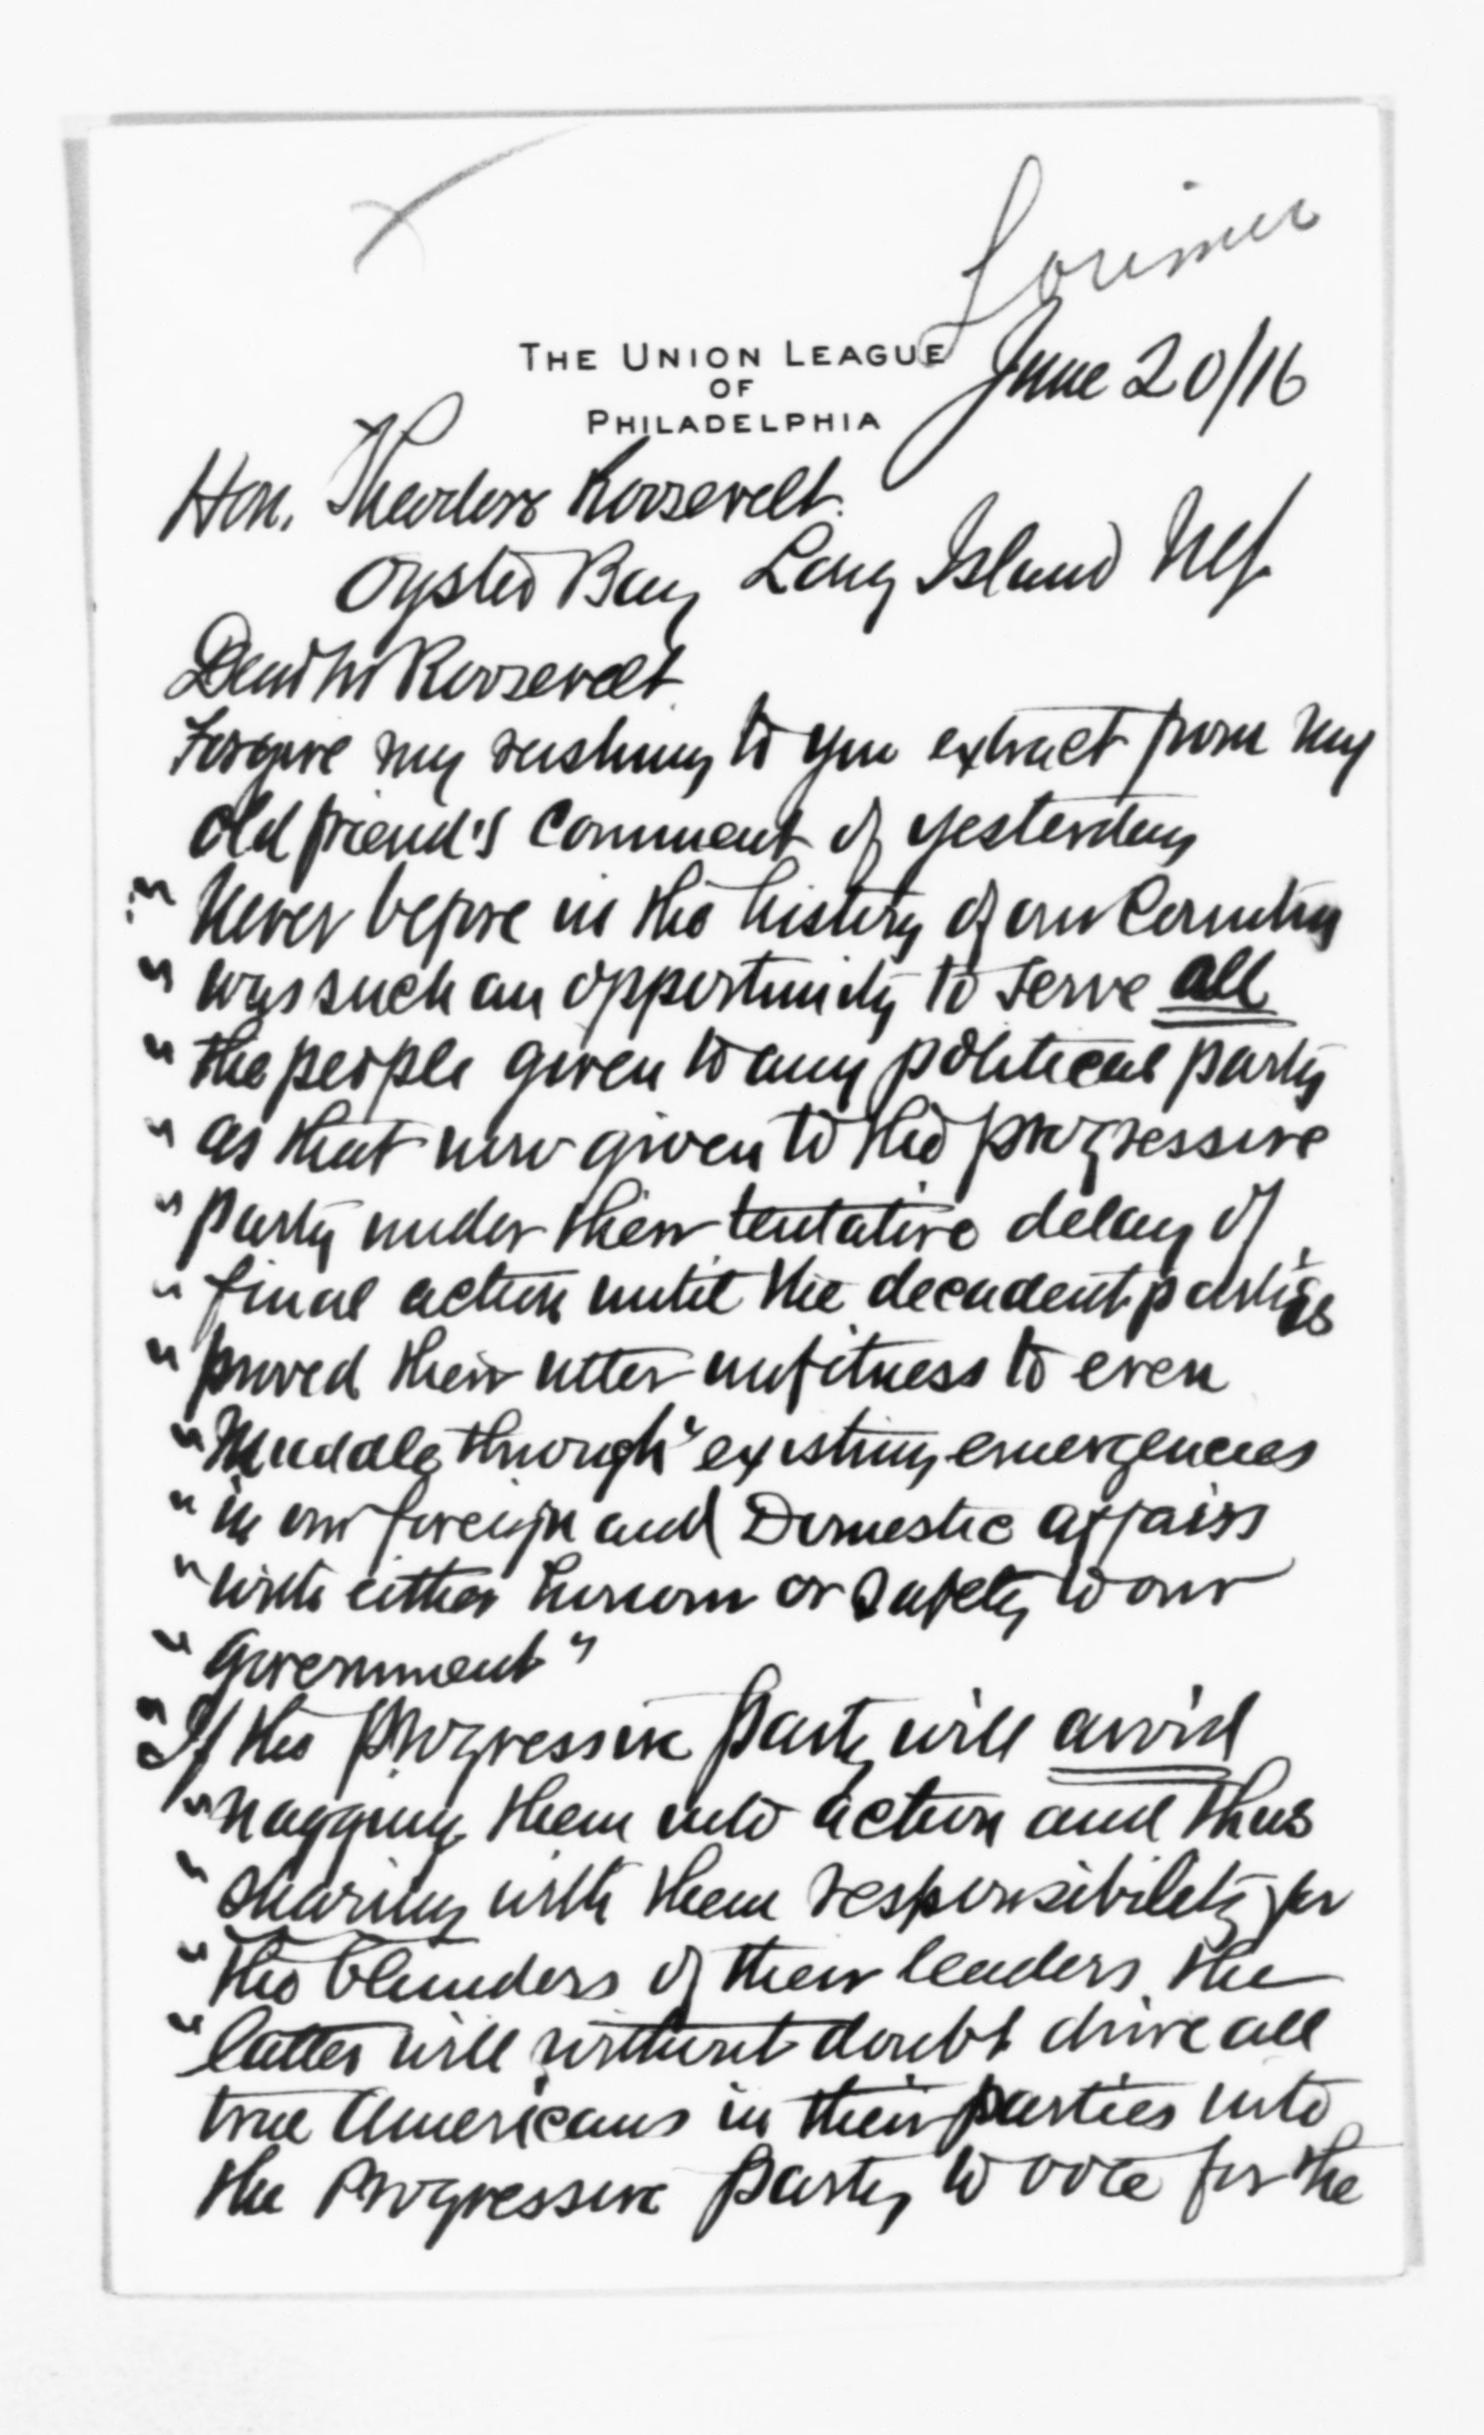 Lorimer
THE UNION LEAGUE
OF
PHILADELPHIA
June 20/16
Hon. Theodore Roosevelt.
Oyster Bay Long Island NY.
Dear Mr Roosevelt
Forgive my rushing to you extract from my
old friend's comment of yesterday
"Never before in the history of our Country
" was such an opportunity to serve all
" the people given to any political party
" as that now given to the progressive
" party under their tentative delay of
" final action until the decadent parties
" proved their utter unfitness to even
" "Muddle through" existing emergencies
" in our foreign and Domestic affairs
" with either honor or safety to our
" Government"
"If the progressive party will avoid
" nagging them into action and thus
" sharing with them responsibility for
" the blunders of their leaders the
" latter will without doubt drive all
true Americans in their parties into
the progressive party to vote for the